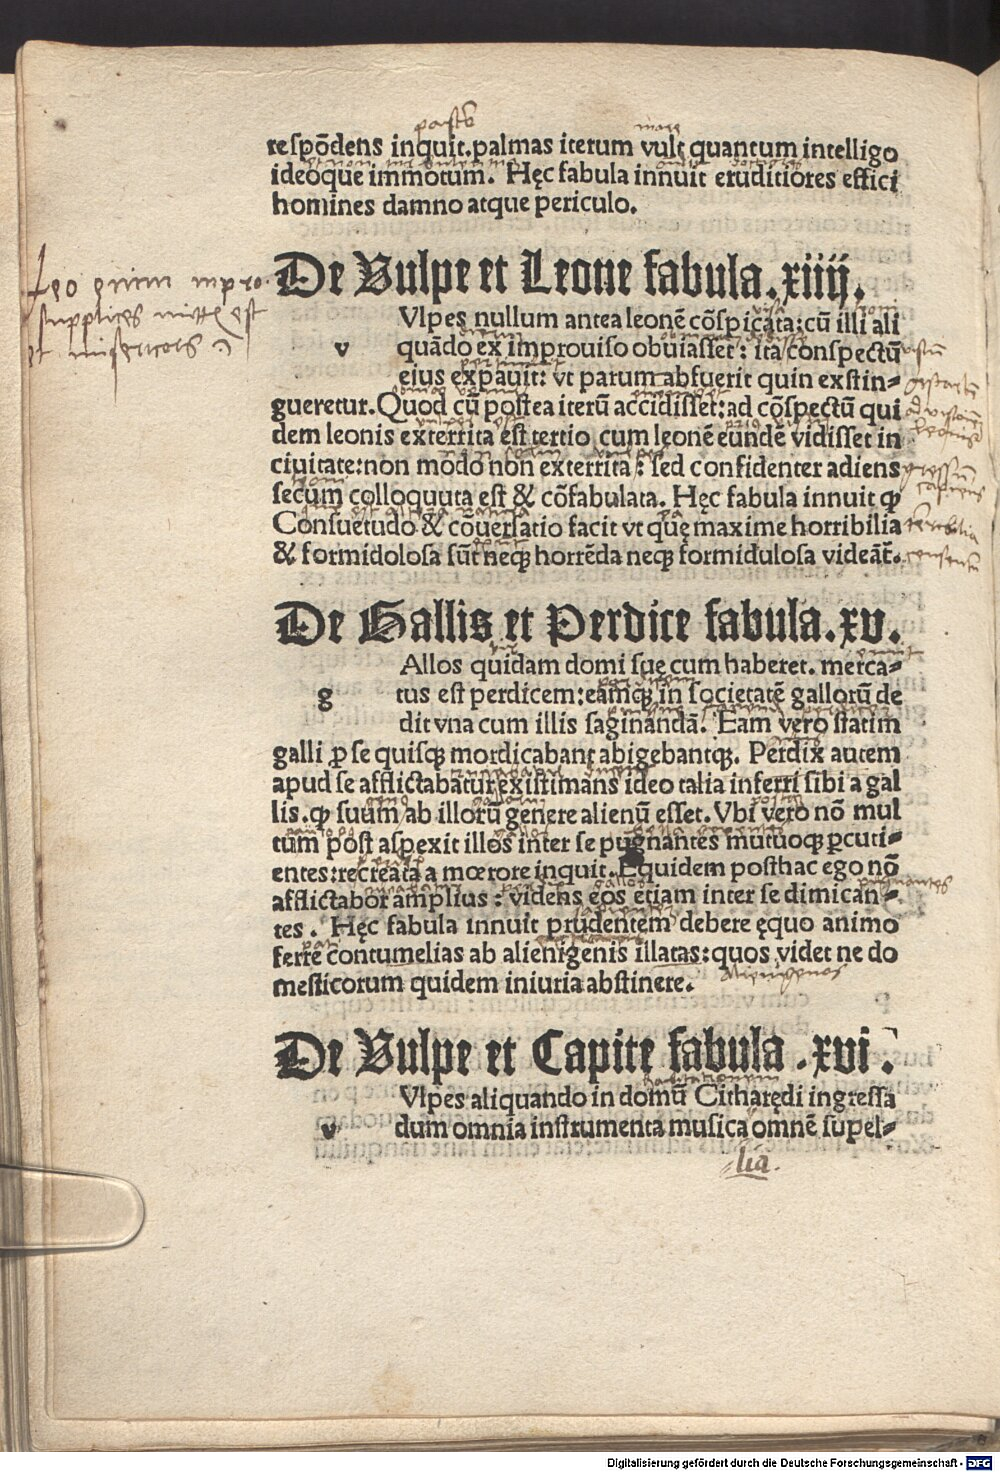 reſpōdens inquit. palmas iterum vult quantum intelligo
ideoque immotum. Hęc fabula innuit eruditiores effici
homines damno atque periculo.
De Vulpe et Leone fabula. xiiij.
Vlpes nullum antea leonē cōſpicata: cū illi ali
v quādo ex improuiſo obuiaſſet: ita conſpectū
eius expauit: vt parum abfuerit quin exſtin-
gueretur. Quod cū poſtea iterū accidiſſet: ad cōſpectū qui
dem leonis exterrita eſt tertio cum leonē eundē vidiſſet in
ciuitate: non modo non exterrita: ſed confidenter adiens
ſecum colloquuta eſt & cōfabulata. Hęc fabula innuit ꝙ
Conſuetudo & cōuerſatio facit vt quę maxime horribilia
& formidoloſa ſūt neqꝫ horrēda neqꝫ formiduloſa videāt̄.
De Gallis et Perdice fabula. xv.
Allos quidam domi ſuę cum haberet. merca-
g tus eſt perdicem: eamqꝫ in ſocietatē gallorū de
dit vna cum illis ſaginandā. Eam vero ſtatim
galli ꝓ ſe quiſqꝫ mordicabant abigebantqꝫ. Perdix autem
apud ſe afflictabatur exiſtimans ideo talia inferri ſibi a gal
lis. ꝙ ſuum ab illorū genere alienū eſſet. Vbi vero nō mul
tum poſt aſpexit illos inter ſe pugnantes mutuoqꝫ ꝑcuti-
entes: recreata a mœrore inquit. Equidem poſthac ego nō
afflictabor amplius: videns eos etiam inter ſe dimican-
tes. Hęc fabula innuit prudentem debere ęquo animo
ferre contumelias ab alienigenis illatas: quos videt ne do
meſticorum quidem iniuria abſtinere.
De Vulpe et Capite fabula. xvi.
Vlpes aliquando in domū Citharędi ingreſſa
v dum omnia inſtrumenta muſica omnē ſupel-
lia.
Leo enim in pro
supplices est
et misericors
Digitalisierung gefördert durch die Deutsche Forschungsgemeinschaft - DFG